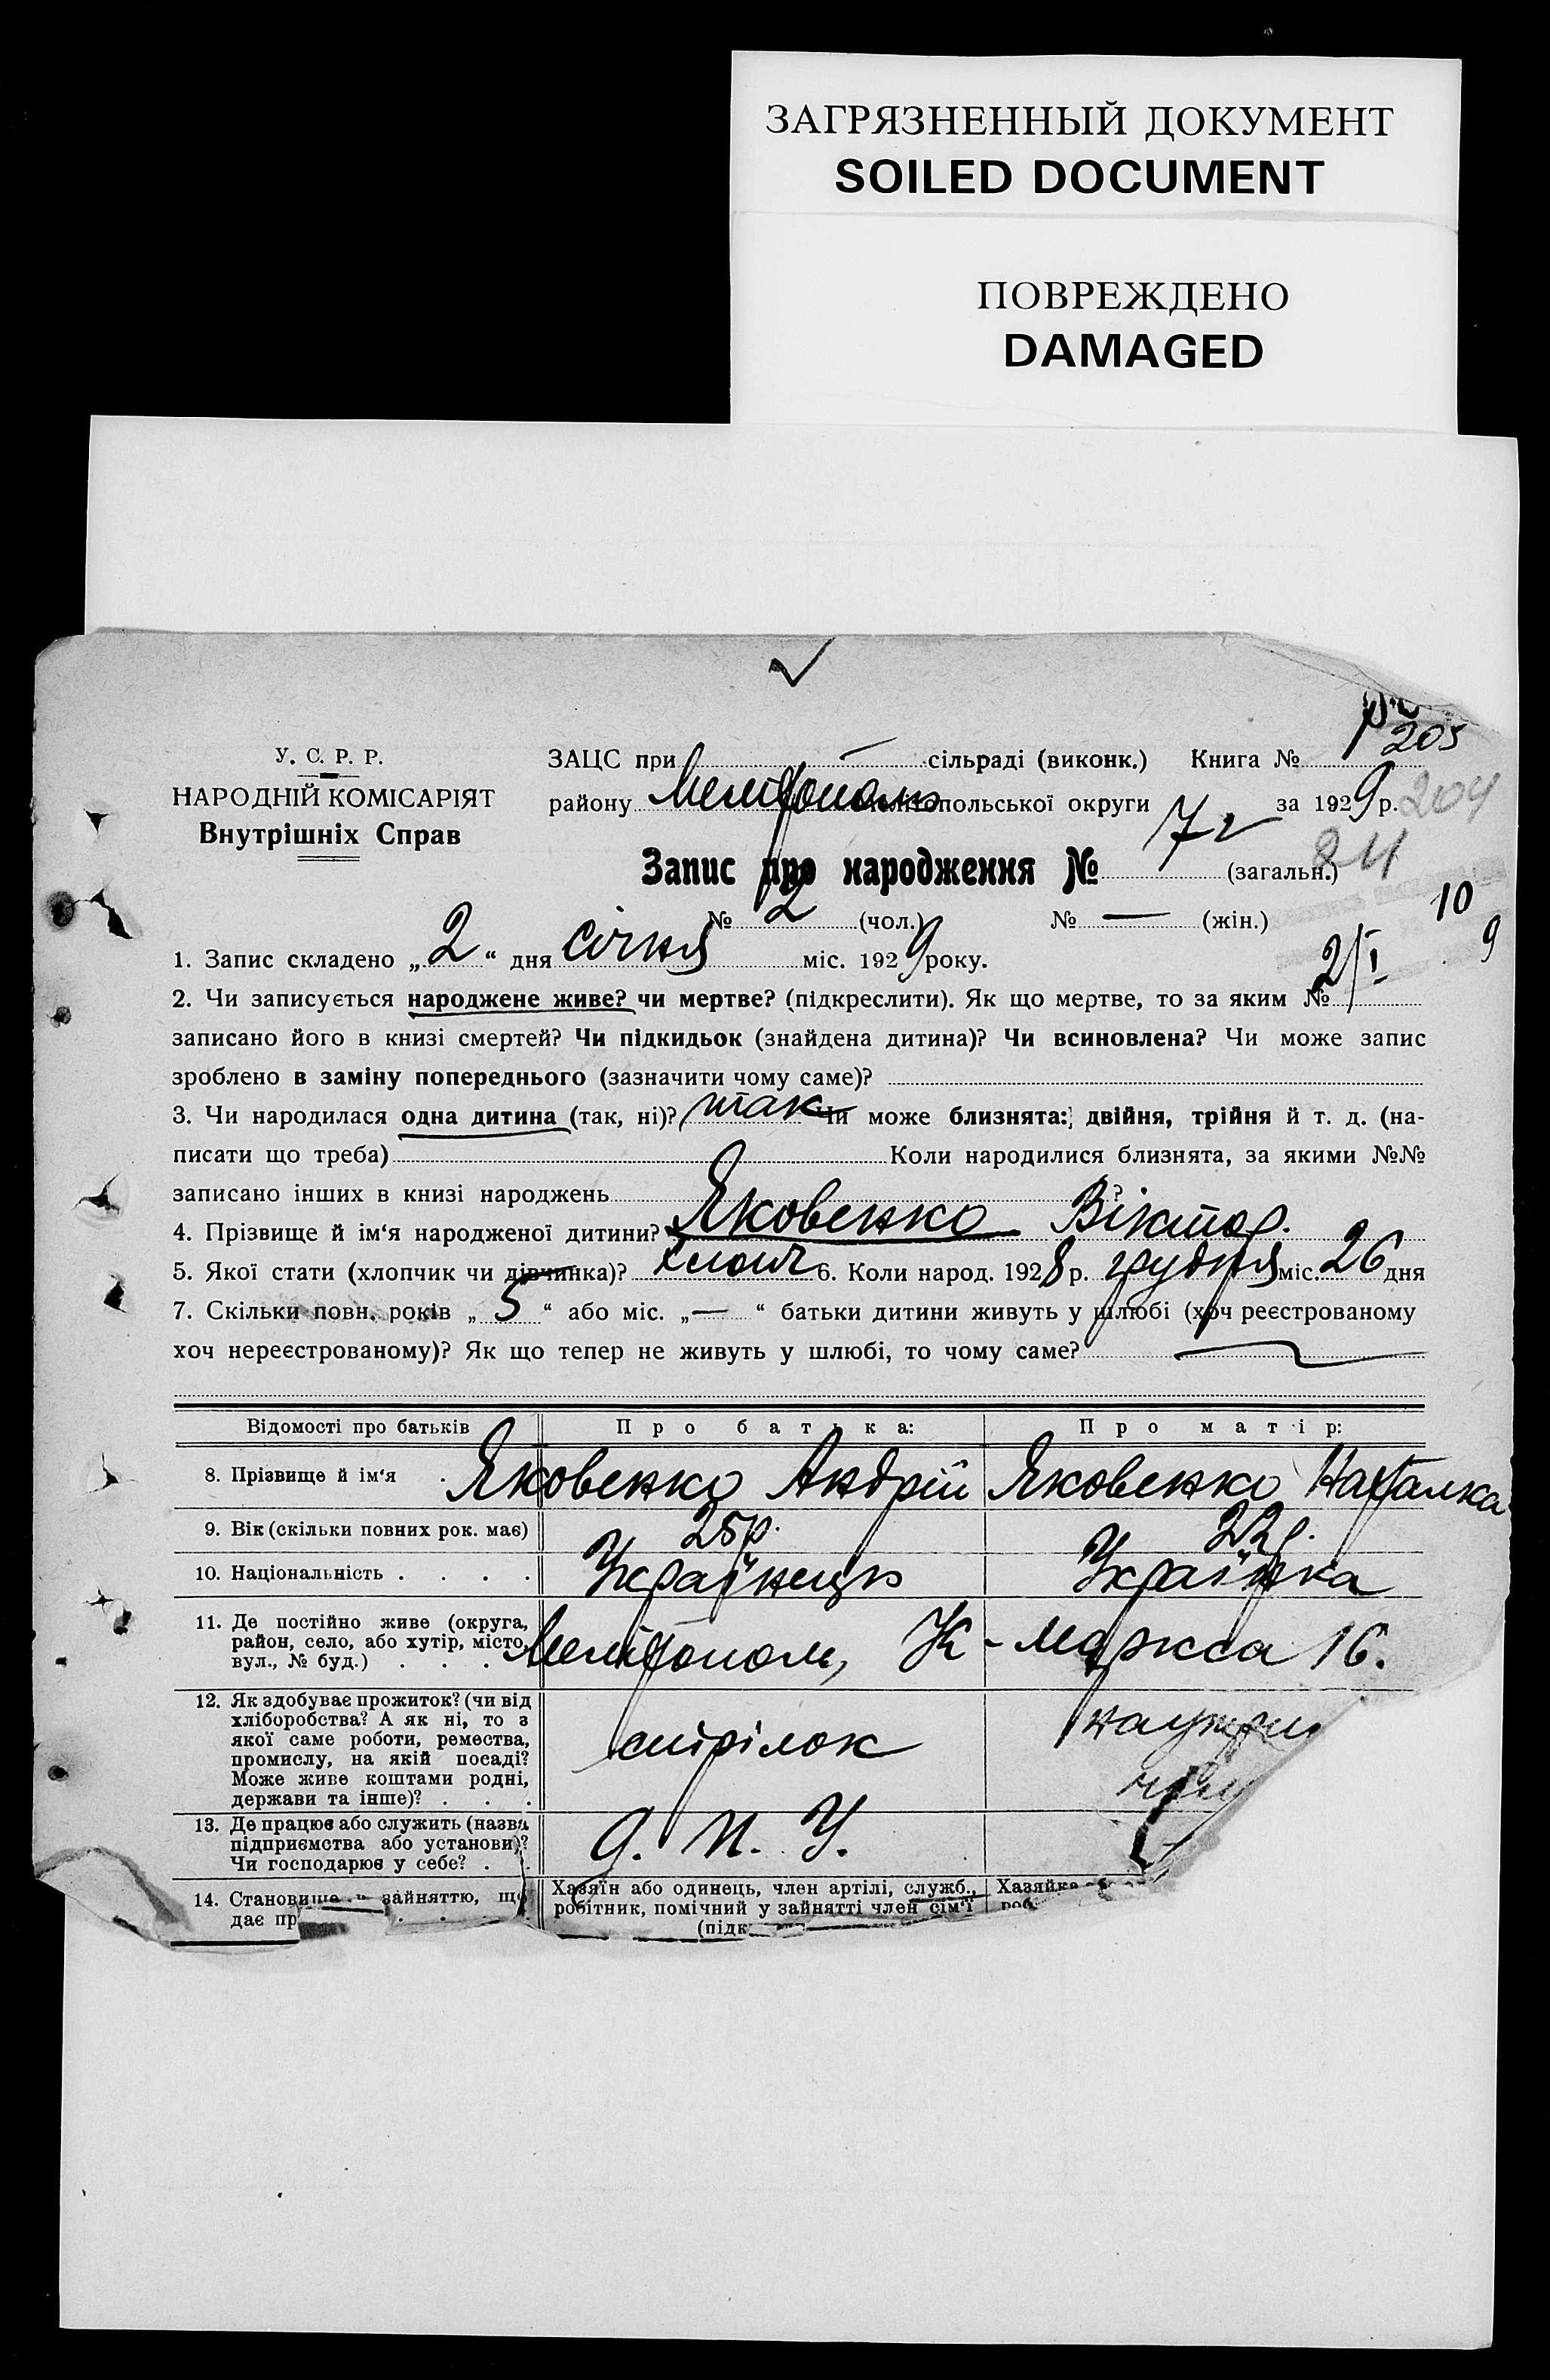 ЗАГРЯЗНЕННЫЙ ДОКУМЕНТ
SOILED DOCUMENT
ПОВРЕЖДЕНО
DAMAGED
205
У. С. Р. Р.
НАРОДНІЙ КОМІСАРІЯТ
Внутрішніх Справ
ЗАЦС при — сільраді (виконк.) Книга №
району Мелітополь опольської округи за 1929 р. 204
Запис про народження № (загальн.) 84
№ 2 (чол.) № — (жін.) 10
9
1. Запис складено „2“ дня січня міс. 1929 року.
2/I
2. Чи записується народжене живе? чи мертве? (підкреслити). Як що мертве, то за яким №
записано його в книзі смертей? Чи підкидьок (знайдена дитина)? Чи всиновлена? Чи може запис
зроблено в заміну попереднього (зазначити чому саме)?
3. Чи народилася одна дитина (так, ні)? так Чи може близнята: двійня, трійня й т. д. (на-
писати що треба) Коли народилися близнята, за якими №№
записано інших в книзі народжень ?
4. Прізвище й ім‘я народженої дитини? Яковенко Віктор.
5. Якої стати (хлопчик чи дівчинка)? хлопч 6. Коли народ. 1928 р. грудня міс. 26 дня
7. Скільки повн. років „5“ або міс. „—“ батьки дитини живуть у шлюбі (хоч реєстрованому
хоч нереєстрованому)? Як що тепер не живуть у шлюбі, то чому саме?
Відомості про батьків Про батька: Про матір:
8. Прізвище й ім‘я . Яковенко Андрій Яковенко Наталка
9. Вік (скільки повних рок. має) 25р. 22р.
10. Національність . . . . Українець Українка
11. Де постійно живе (округа,
район, село, або хутір, місто,
вул., № буд.) . . . Мелітополь, К-Маркса 16.
12. Як здобуває прожиток? (чи від
хліборобства? А як ні, то з
якої саме роботи, ремества,
промислу, на якій посаді?
Може живе коштами родні,
держави та інше)? . . . стрілок
13. Де працює або служить (назва
підприємства або установи)?
Чи господарює у себе? . . Д. П. У.
14. Становище зайняттю, що
дає пр
Хазяїн або одинець, член артілі, служб.,
робітник, помічний у зайнятті член сім‘ї
(підк
Хазяйка
роб